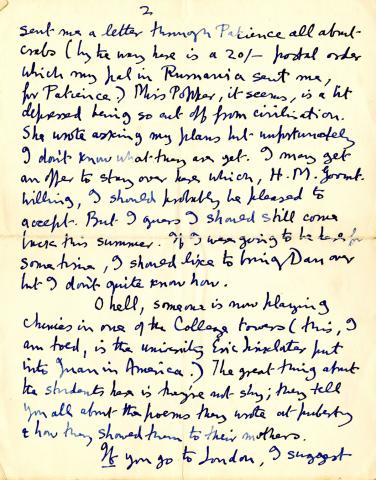 2
sent me a letter through Patience all about
crabs (by the way here is a 20/- postal order
which my pal in Rumania sent me,
for Patience.) Miss Popper, it seems, is a bit
depressed being so cut off from civilisation.
She wrote asking my plans but unfortunately
I don't know what they are yet. I may get
an offer to stay over here which, H.M. Govmt.
willing, I should probably be pleased to
accept. But I guess I should still come
back this summer. If I was going to be here for
some time, I should like to bring Dan over
but I don't quite know how.
O hell, someone is now playing
chimes in one of the College towers (this, I
am told, is the university Eric Linklater put
into Juan in America.) The great thing about
the students here is they're not shy; they tell
you all about the poems they wrote at puberty
& how they showed them to their mothers.
If you go to London, I suggest